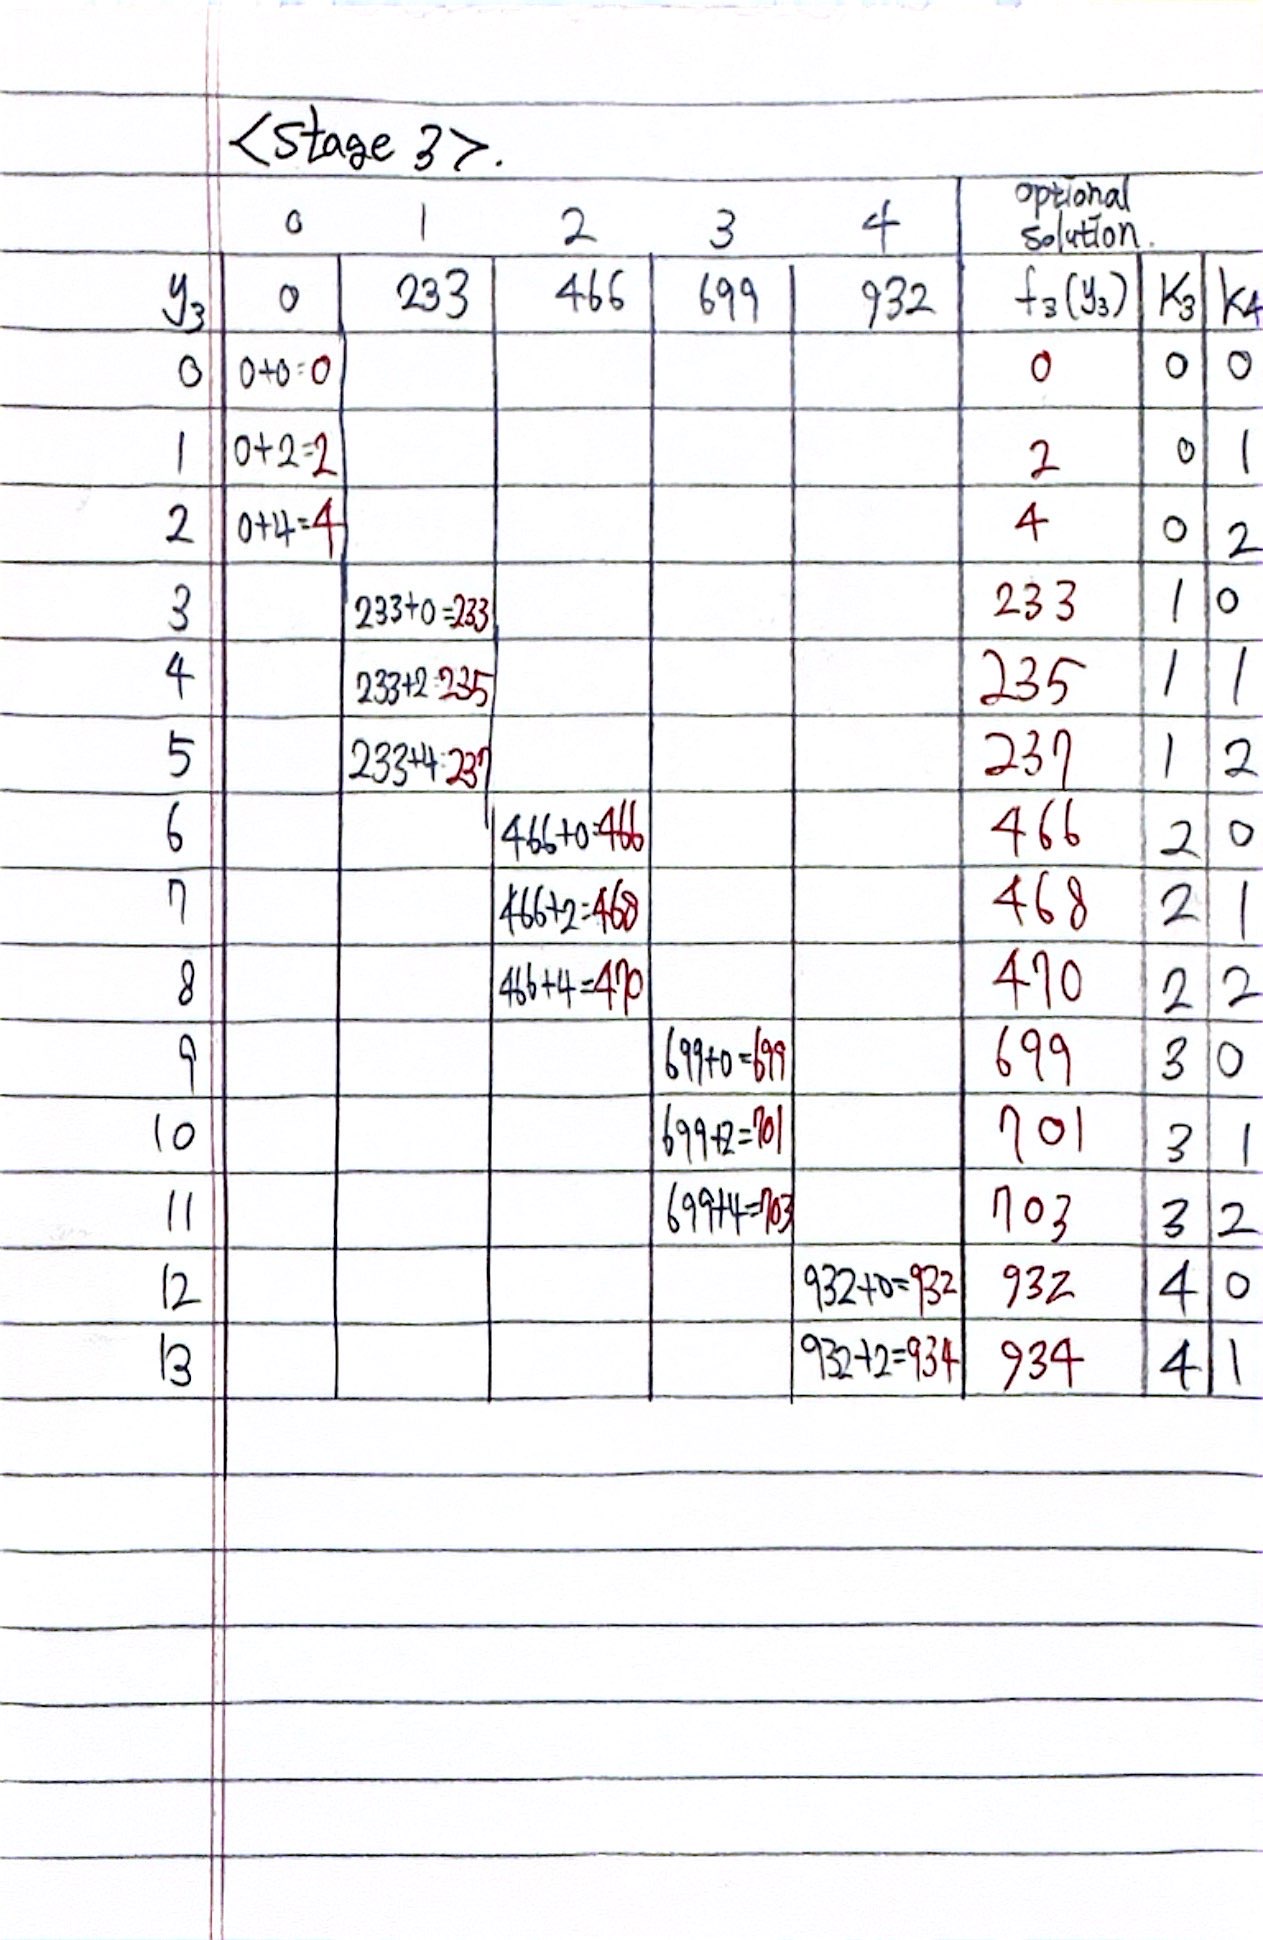 <Stage 3>.
0 1 2 3 4 optional solution.
y3 0 233 466 699 932 f3(y3) K3 K4
0 0+0=0 0 0 0
1 0+2=2 2 0 1
2 0+4=4 4 0 2
3 233+0=233 233 1 0
4 233+2=235 235 1 1
5 233+4=237 237 1 2
6 466+0=466 466 2 0
7 466+2=468 468 2 1
8 466+4=470 470 2 2
9 699+0=699 699 3 0
10 699+2=701 701 3 1
11 699+4=703 703 3 2
12 932+0=932 932 4 0
13 932+2=934 934 4 1